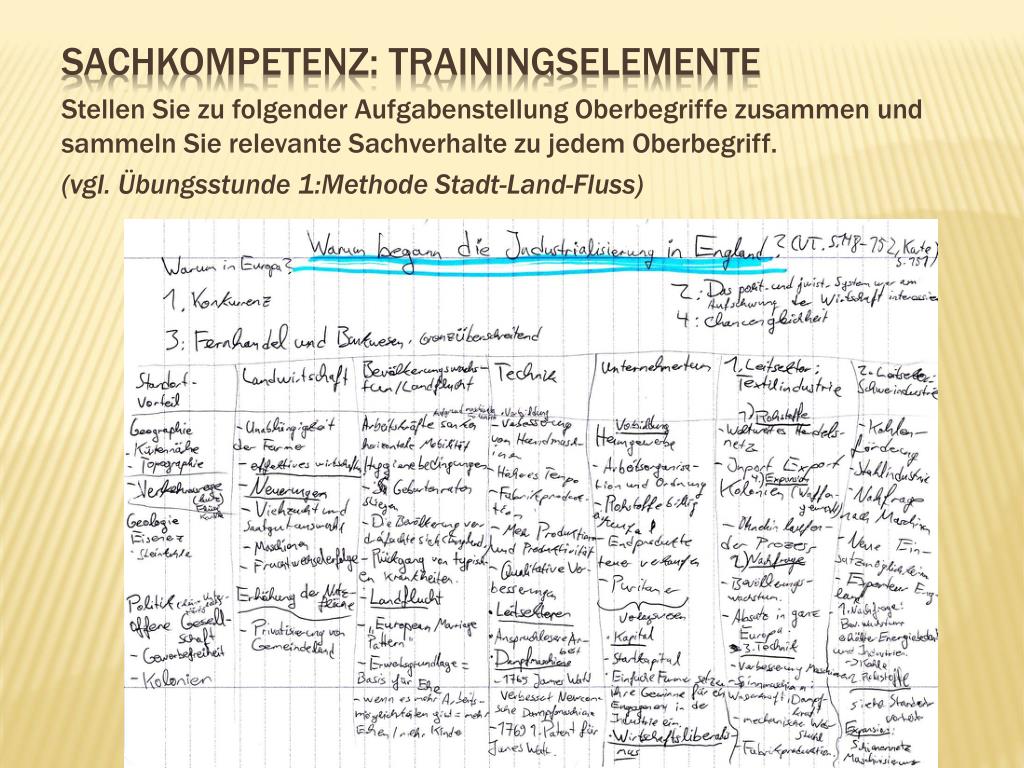 SACHKOMPETENZ: TRAININGSELEMENTE
Stellen Sie zu folgender Aufgabenstellung Oberbegriffe zusammen und
sammeln Sie relevante Sachverhalte zu jedem Oberbegriff.
(vgl. Übungsstunde 1:Methode Stadt-Land-Fluss)
Warum begann die Industrialisierung in England? (VT. S.148-152, Karte
S. 151)
Warum in Europa?
1. Konkurenz
2: Das polit.- und jurist. System war am
Aufschwung der Wirtschaft
4: Chancengleichheit
3: Fernhandel und Bankwesen, Grenzüberschreitend
Standort-
vorteil
Geographie
- Küstennähe
- Topographie
- Verkehrswege
Geologie
Eisenerz
- Steinkohle
Politik
offene Gesell-
schaft
- Gewerbefreiheit
- Kolonien
Landwirtschaft
- Unabhängigkeit
der Farmer
- effektives
- Neuerungen
- Viehzucht und
Saatgutauswahl
- Maschinen
- Fruchtwechselerfolge
Erhöhung der Nutz-
fläche
- Privatisierung von
Gemeindeland
Bevölkerungswachs-
tum/Landflucht
Arbeitskräfte
horizontale Mobilität
Hygienebedingungen
- Geburtenraten
stiegen
- Die Bevölkerung ver-
- Rückgang von typisch-
en Krankheiten.
- Landflucht
- "European Mariage
Pattern"
- Erwerbsgrundlage =
Basis für Ehe
- wenn es mehr Arbeits-
möglichkeiten gibt = mehr
Ehen / mehr Kinder
Technik
- Verbesserung
von
- Höheres Tempo
- Fabrikproduk-
tion
- Mehr Produktion
und Produktivität
- Qualitative Ver-
besserungen
• Leitsektoren
• Anspruchlosere Ar-
beit
• Dampfmaschine
- 1765 James Watt
verbessert Newcomen-
sche Dampfmaschine
- 1769 1. Patent für
James Watt.
Unternehmertum
Vorbildung
Heimgewerbe
- Arbeitsorganisa-
tion und Ordnung
- Rohstoffe billig
- Endprodukte
teuer verkaufen
- Puritaner
Verlagswesen
• Kapital
- Startkapital
- Einfache Farmer setzen
ihre Gewinne für ein
Engagement in der
Industrie ein.
- Wirtschaftsliberalis-
mus
1. Leitsektor:
Textilindustrie
1) Rohstoffe
- Weltweites Handels-
netz
- Import Export
4.) Expansion
Kolonien (Waffen-
gewalt)
- Ohnehin laufen-
der Prozess
2) Nachfrage
- Bevölkerungs-
wachstum.
- Absatz in ganz
Europa.
3. Technik
- Verbesserung Maschinen
- Spinnmaschine:
Wasserkraft, Dampf-
kraft
- mechanischer Web-
stuhl
- Fabrikproduktion
2. Leitsektor:
Schwerindustrie
- Kohlen-
förderung
- Stahlindustrie
- Nachfrage
nach Maschinen
- Neue Ein-
satzmöglichkeiten
- Exporteur Eng-
land
1. Nachfrage:
Bev. wachstum
erhöhter Energiebedarf
und Industrien
-> Kohle
2. Rohstoffe
siehe Standort-
vorteile
Expansion:
Schienennetz
Maschinisierung